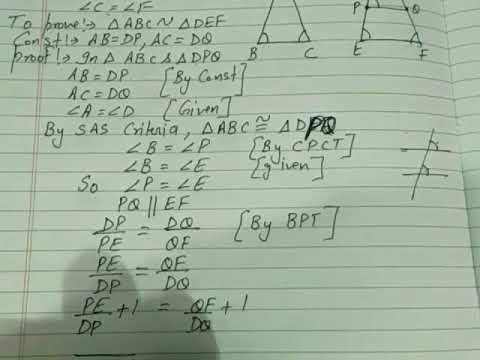 ∠C = ∠F
To prove:→ △ABC ~ △DEF
Const:→ AB=DP, AC=DQ
Proof:→ In △ ABC & △DPQ
AB = DP [By Const]
AC = DQ
∠A = ∠D [Given]
By SAS Criteria, △ABC ≅ △DPQ
∠B = ∠P [By CPCT]
∠B = ∠E [given]
So ∠P = ∠E
PQ || EF
DP/PE = DQ/QF [By BPT]
PE/DP = QF/DQ
PE/DP + 1 = QF/DQ + 1
B C
P Q
E F